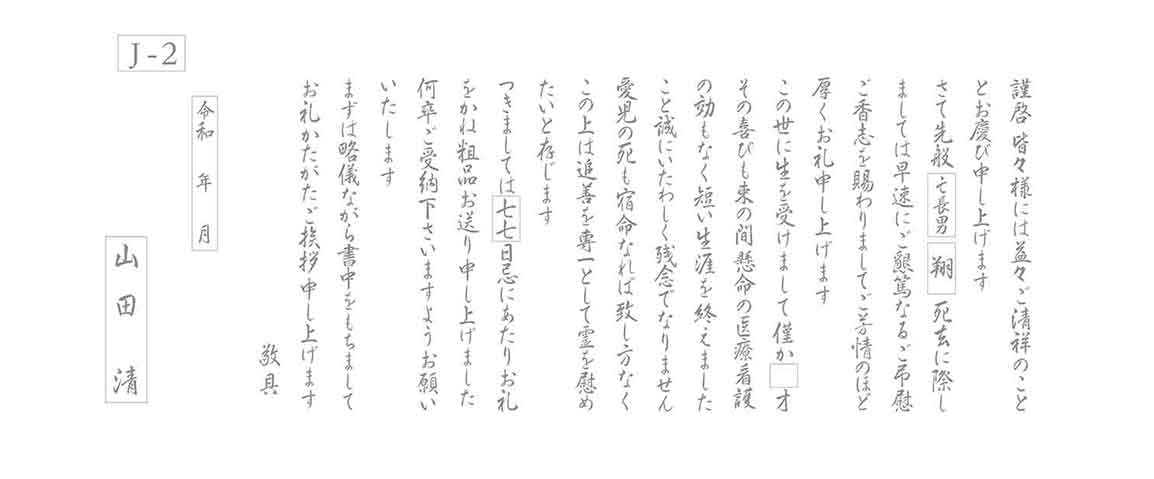 J-2
謹啓 皆々様には益々ご清祥のこと
とお慶び申し上げます
さて先般 亡長男 翔 死去に際し
ましては早速にご懇篤なるご弔慰
ご香志を賜わりましてご芳情のほど
厚くお礼申し上げます
この世に生を受けまして僅か 才
その喜びも束の間懸命の医療看護
の効もなく短い生涯を終えました
こと誠にいたわしく残念でなりません
愛児の死も宿命なれば致し方なく
この上は追善を専一として霊を慰め
たいと存じます
つきましては七七日忌にあたりお礼
をかね粗品お送り申し上げました
何卒ご受納下さいますようお願い
いたします
まずは略儀ながら書中をもちまして
お礼かたがたご挨拶申し上げます
敬具
令和 年 月
山田 清